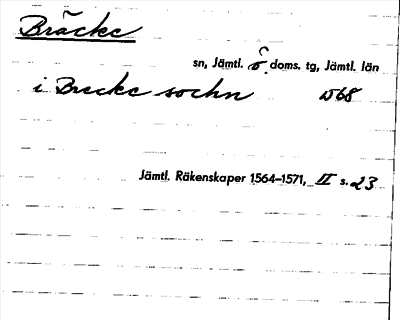 Bräcke
sn, Jämtl. ö. doms. tg, Jämtl. län
i Brecke sochn 1568
Jämtl. Räkenskaper 1564–1571, II s. 23